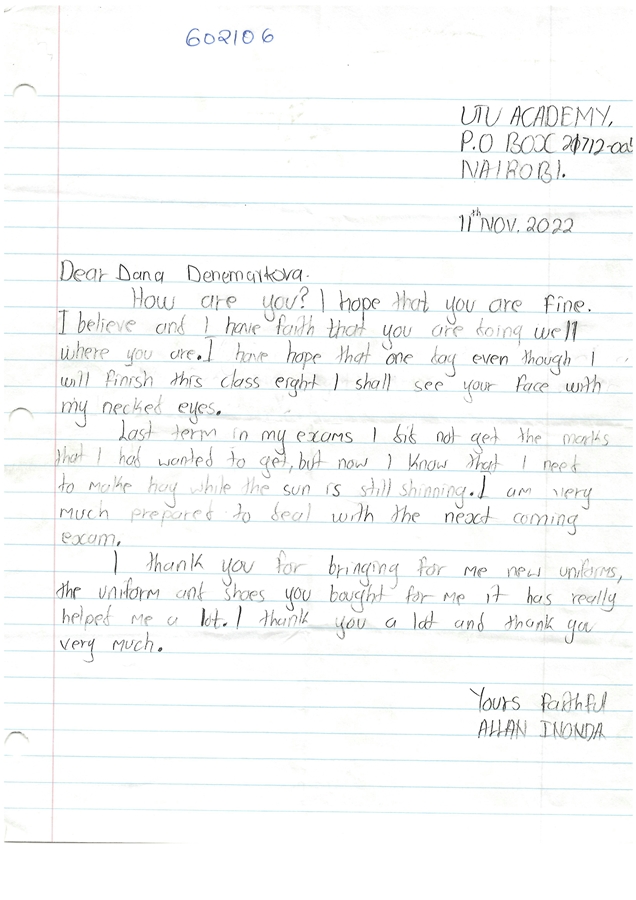 602106
UTU ACADEMY.
P.O BOX
NAIROBI.
11th NOV. 2022
Dear Dana Denemarkova.
How are you? I hope that you are fine.
I believe and I have faith that you are doing well
where you are. I have hope that one day even though I
will finish this class eight I shall see your face with
my necked eyes.
Last term in my exams I did not get the marks
that I had wanted to get, but now I know that I need
to make hay while the sun is still shinning. I am very
much prepared to deal with the next coming
exam.
I thank you for bringing for me new uniforms,
the uniform and shoes you bought for me it has really
helped me a lot. I thank you a lot and thank you
very much.
Yours faithful
ALLAN INONDA